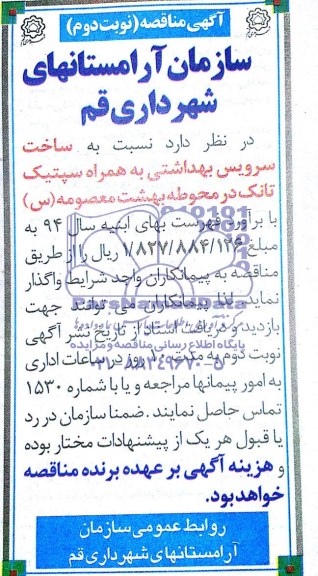 آگهی مناقصه (نوبت دوم)
سازمان آرامستانهای
شهرداری قم
در نظر دارد نسبت به ساخت
سرویس بهداشتی به همراه سپتیک
تانک در محوطه بهشت معصومه (س)
با برآورد فهرست بهای ابنیه سال ۹۴ به
مبلغ ۱/۸۲۷/۸۸۴/۱۲۶ ریال را از طریق
مناقصه به پیمانکاران واجد شرایط واگذار
نماید. لذا پیمانکاران می توانند جهت
بازدید و دریافت اسناد از تاریخ نشر آگهی
نوبت دوم به مدت ۱۰ روز در ساعات اداری
به امور پیمانها مراجعه و یا با شماره ۱۵۳۰
تماس حاصل نمایند. ضمنا سازمان در رد
یا قبول هر یک از پیشنهادات مختار بوده
و هزینه آگهی بر عهده برنده مناقصه
خواهد بود.
روابط عمومی سازمان
آرامستانهای شهرداری قم
ParsNamadData
پایگاه اطلاع رسانی مناقصه و مزایده
۰۲۱-۸۸۳۴۹۶۷۰-۵